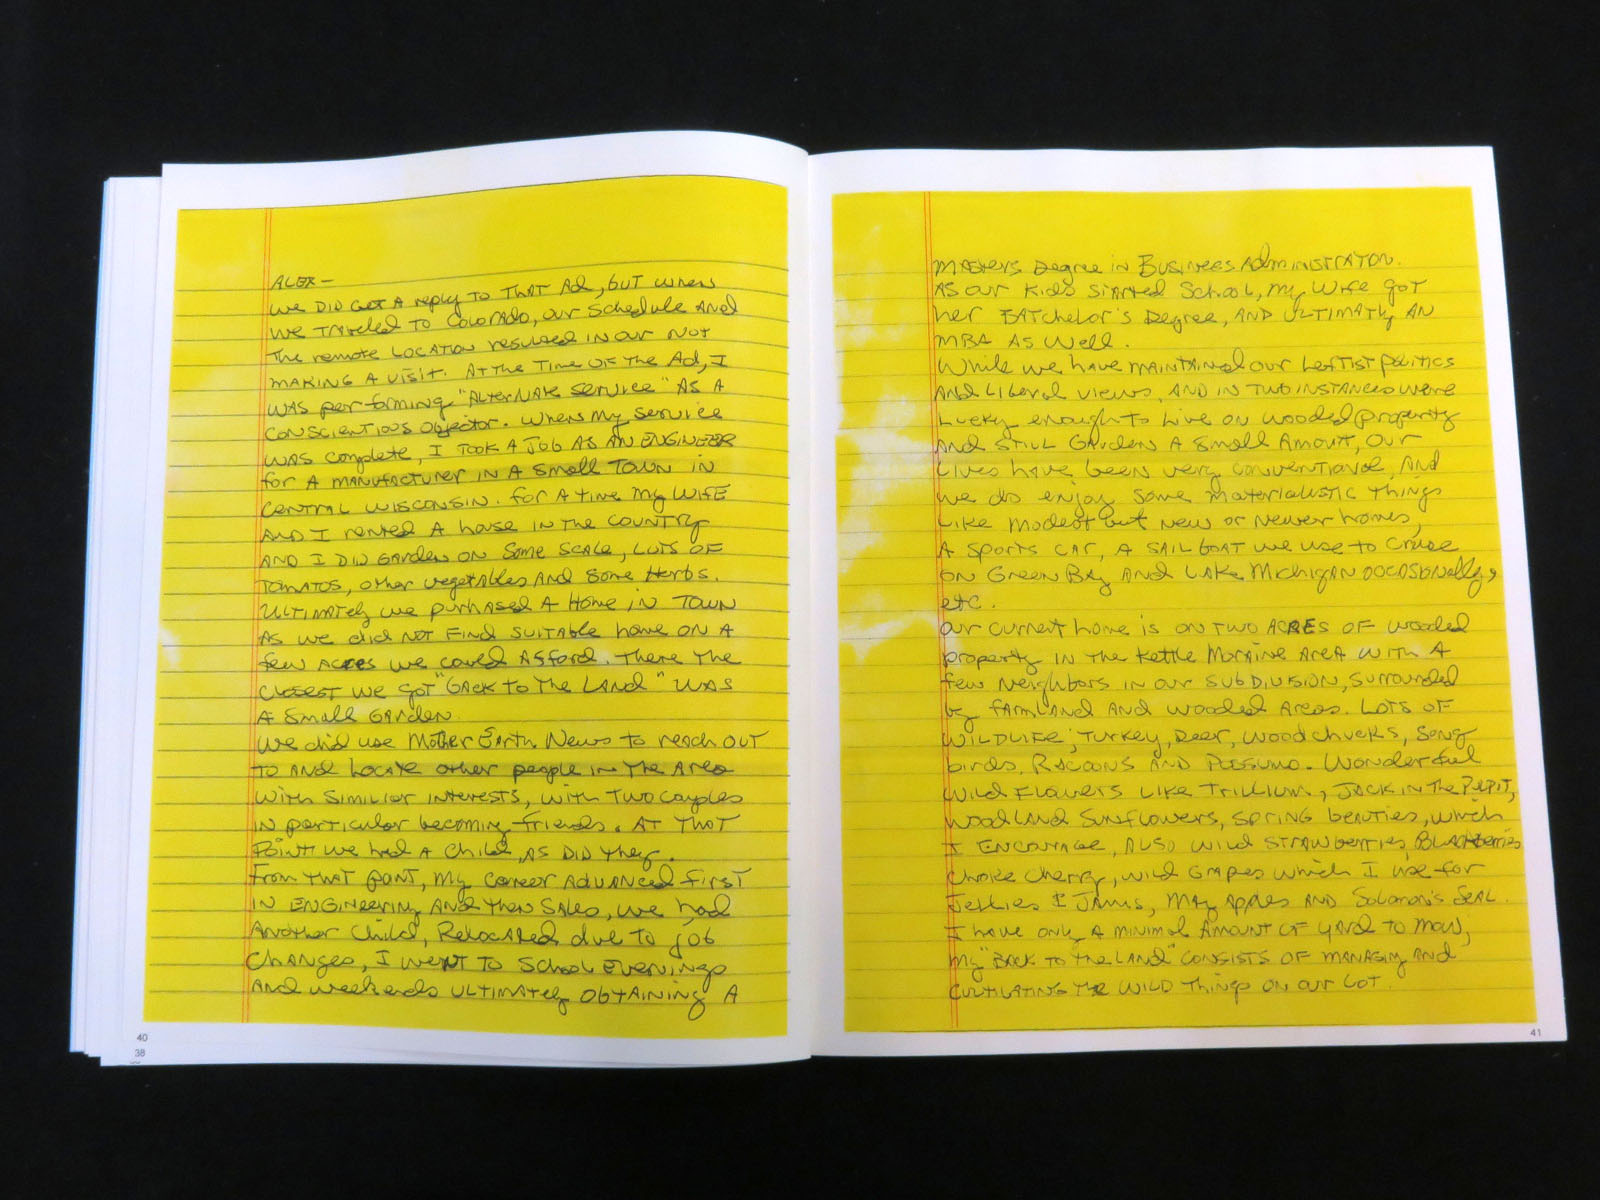 ALEX-
WE DID GET A reply TO THAT Ad, but when
WE TRAVELED TO COLORADO, our Schedule AND
The remote LOCATION resulted in our NOT
MAKING A VISIT. AT the Time OF the Ad, I
WAS performing "ALTERNATE service" AS A
CONSCIENTIOUS Objector. When My service
WAS complete, I TOOK A JOB AS AN ENGINEER
for A MANUFACTURER IN A Small TOWN in
CENTRAL WISCONSIN. For A Time My WIFE
AND I rented A house IN the COUNTRY
AND I DID GARDEN ON Some SCALE, LOTS OF
TOMATOS, other vegetABles AND Some Herbs.
ULTIMATEly we purhased A Home iN TOWN
AS we did NOT FIND SUITABLE home ON A
few ACRES we could Afford. There The
CLOSEST WE GOT "BACK TO The LAND" WAS
A Small GARDEN.
We did use Mother Earth News TO reach OUT
TO AND LOCATE other people IN The AreA
With SIMILIAr INTERESTS, with TWO couples
IN particular becoming friends. AT THAT
POINT we had A Child, AS DID They.
From THAT point, My career ADVANCED first
IN ENGINEERING AND Then SAles, we had
Another Child, Relocated due to job
Changes, I went TO School EVENINGS
AND weekends ULTIMATEly OBTAINING A
40
38
MASTERS Degree in Business AdministratON.
AS our Kids STARTED School, My Wife got
her BATCHelor's Degree, AND ULTIMATly AN
MBA AS Well.
While we have MAINTAINed our LeftIST politics
And LIBerAl views, AND IN TWO INSTANCES were
Lucky enough to Live on wooded property
And STILL GARDEN A Small Amount, Our
Lives have been very conventional, And
we do enjoy Some materialistic Things
Like Modest but New or Newer homes,
A Sports CAr, A SAIL BOAT we use to Cruise
ON Green BAy AND LAKe Michigan occasionally,
etc.
Our current home is ON TWO ACRES OF wooded
property IN The Kettle Moraine AreA with A
few Neighbors IN our SUBDIVISION, Surrounded
by FArmLAND AND wooded Areas. LOTS OF
WILDLIFE; Turkey, Deer, Woodchucks, Song
birds, Racoons AND Possums. Wonderful
Wild Flowers Like Trillium, JACK IN The Pulpit,
Woodland Sunflowers, Spring beauties, which
I ENCOURAGE, Also Wild STRAWberries, BLACKberries
Choke Cherry, Wild Grapes which I use for
Jellies & Jams, May Apples AND Solomon's SEAL.
I have only A minimal Amount OF YARD TO MOW,
My "BACK to the LAND" CONSISTS OF MANAGING AND
CULTIVATING THE WILD Things ON our LOT.
41